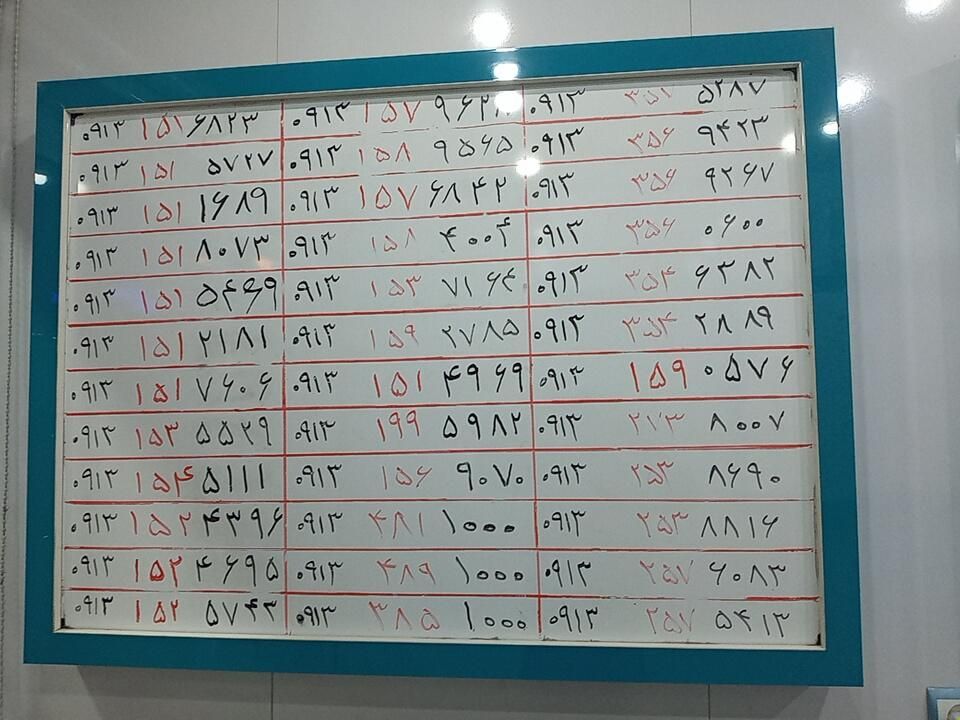 ۰۹۱۳ ۱۵۱ ۶۸۲۳ ۰۹۱۳ ۱۵۷ ۹۶۲۸ ۰۹۱۳ ۳۵۱ ۵۲۸۷
۰۹۱۳ ۱۵۱ ۵۷۲۷ ۰۹۱۳ ۱۵۸ ۹۵۶۵ ۰۹۱۳ ۳۵۶ ۹۴۲۳
۰۹۱۳ ۱۵۱ ۱۶۸۹ ۰۹۱۳ ۱۵۷ ۶۸۴۲ ۰۹۱۳ ۳۵۶ ۹۲۶۷
۰۹۱۳ ۱۵۱ ۸۰۷۳ ۰۹۱۳ ۱۵۸ ۴۰۰۴ ۰۹۱۳ ۳۵۶ ۰۶۰۰
۰۹۱۳ ۱۵۱ ۵۴۶۹ ۰۹۱۳ ۱۵۳ ۷۱۶۴ ۰۹۱۳ ۳۵۴ ۶۳۸۲
۰۹۱۳ ۱۵۱ ۲۱۸۱ ۰۹۱۳ ۱۵۹ ۲۷۸۵ ۰۹۱۳ ۳۵۴ ۲۸۸۹
۰۹۱۳ ۱۵۱ ۷۶۰۶ ۰۹۱۳ ۱۵۱ ۴۹۶۹ ۰۹۱۳ ۱۵۹ ۰۵۷۶
۰۹۱۳ ۱۵۳ ۵۵۲۹ ۰۹۱۳ ۱۹۹ ۵۹۸۲ ۰۹۱۳ ۲۱۳ ۸۰۰۷
۰۹۱۳ ۱۵۴ ۵۱۱۱ ۰۹۱۳ ۱۵۶ ۹۰۷۰ ۰۹۱۳ ۲۵۳ ۸۶۹۰
۰۹۱۳ ۱۵۲ ۴۳۹۶ ۰۹۱۳ ۴۸۱ ۱۰۰۰ ۰۹۱۳ ۲۵۳ ۸۸۱۶
۰۹۱۳ ۱۵۲ ۴۶۹۵ ۰۹۱۳ ۴۸۹ ۱۰۰۰ ۰۹۱۳ ۲۵۷ ۶۰۸۳
۰۹۱۳ ۱۵۲ ۵۷۴۳ ۰۹۱۳ ۳۸۵ ۱۰۰۰ ۰۹۱۳ ۲۵۷ ۵۴۱۳